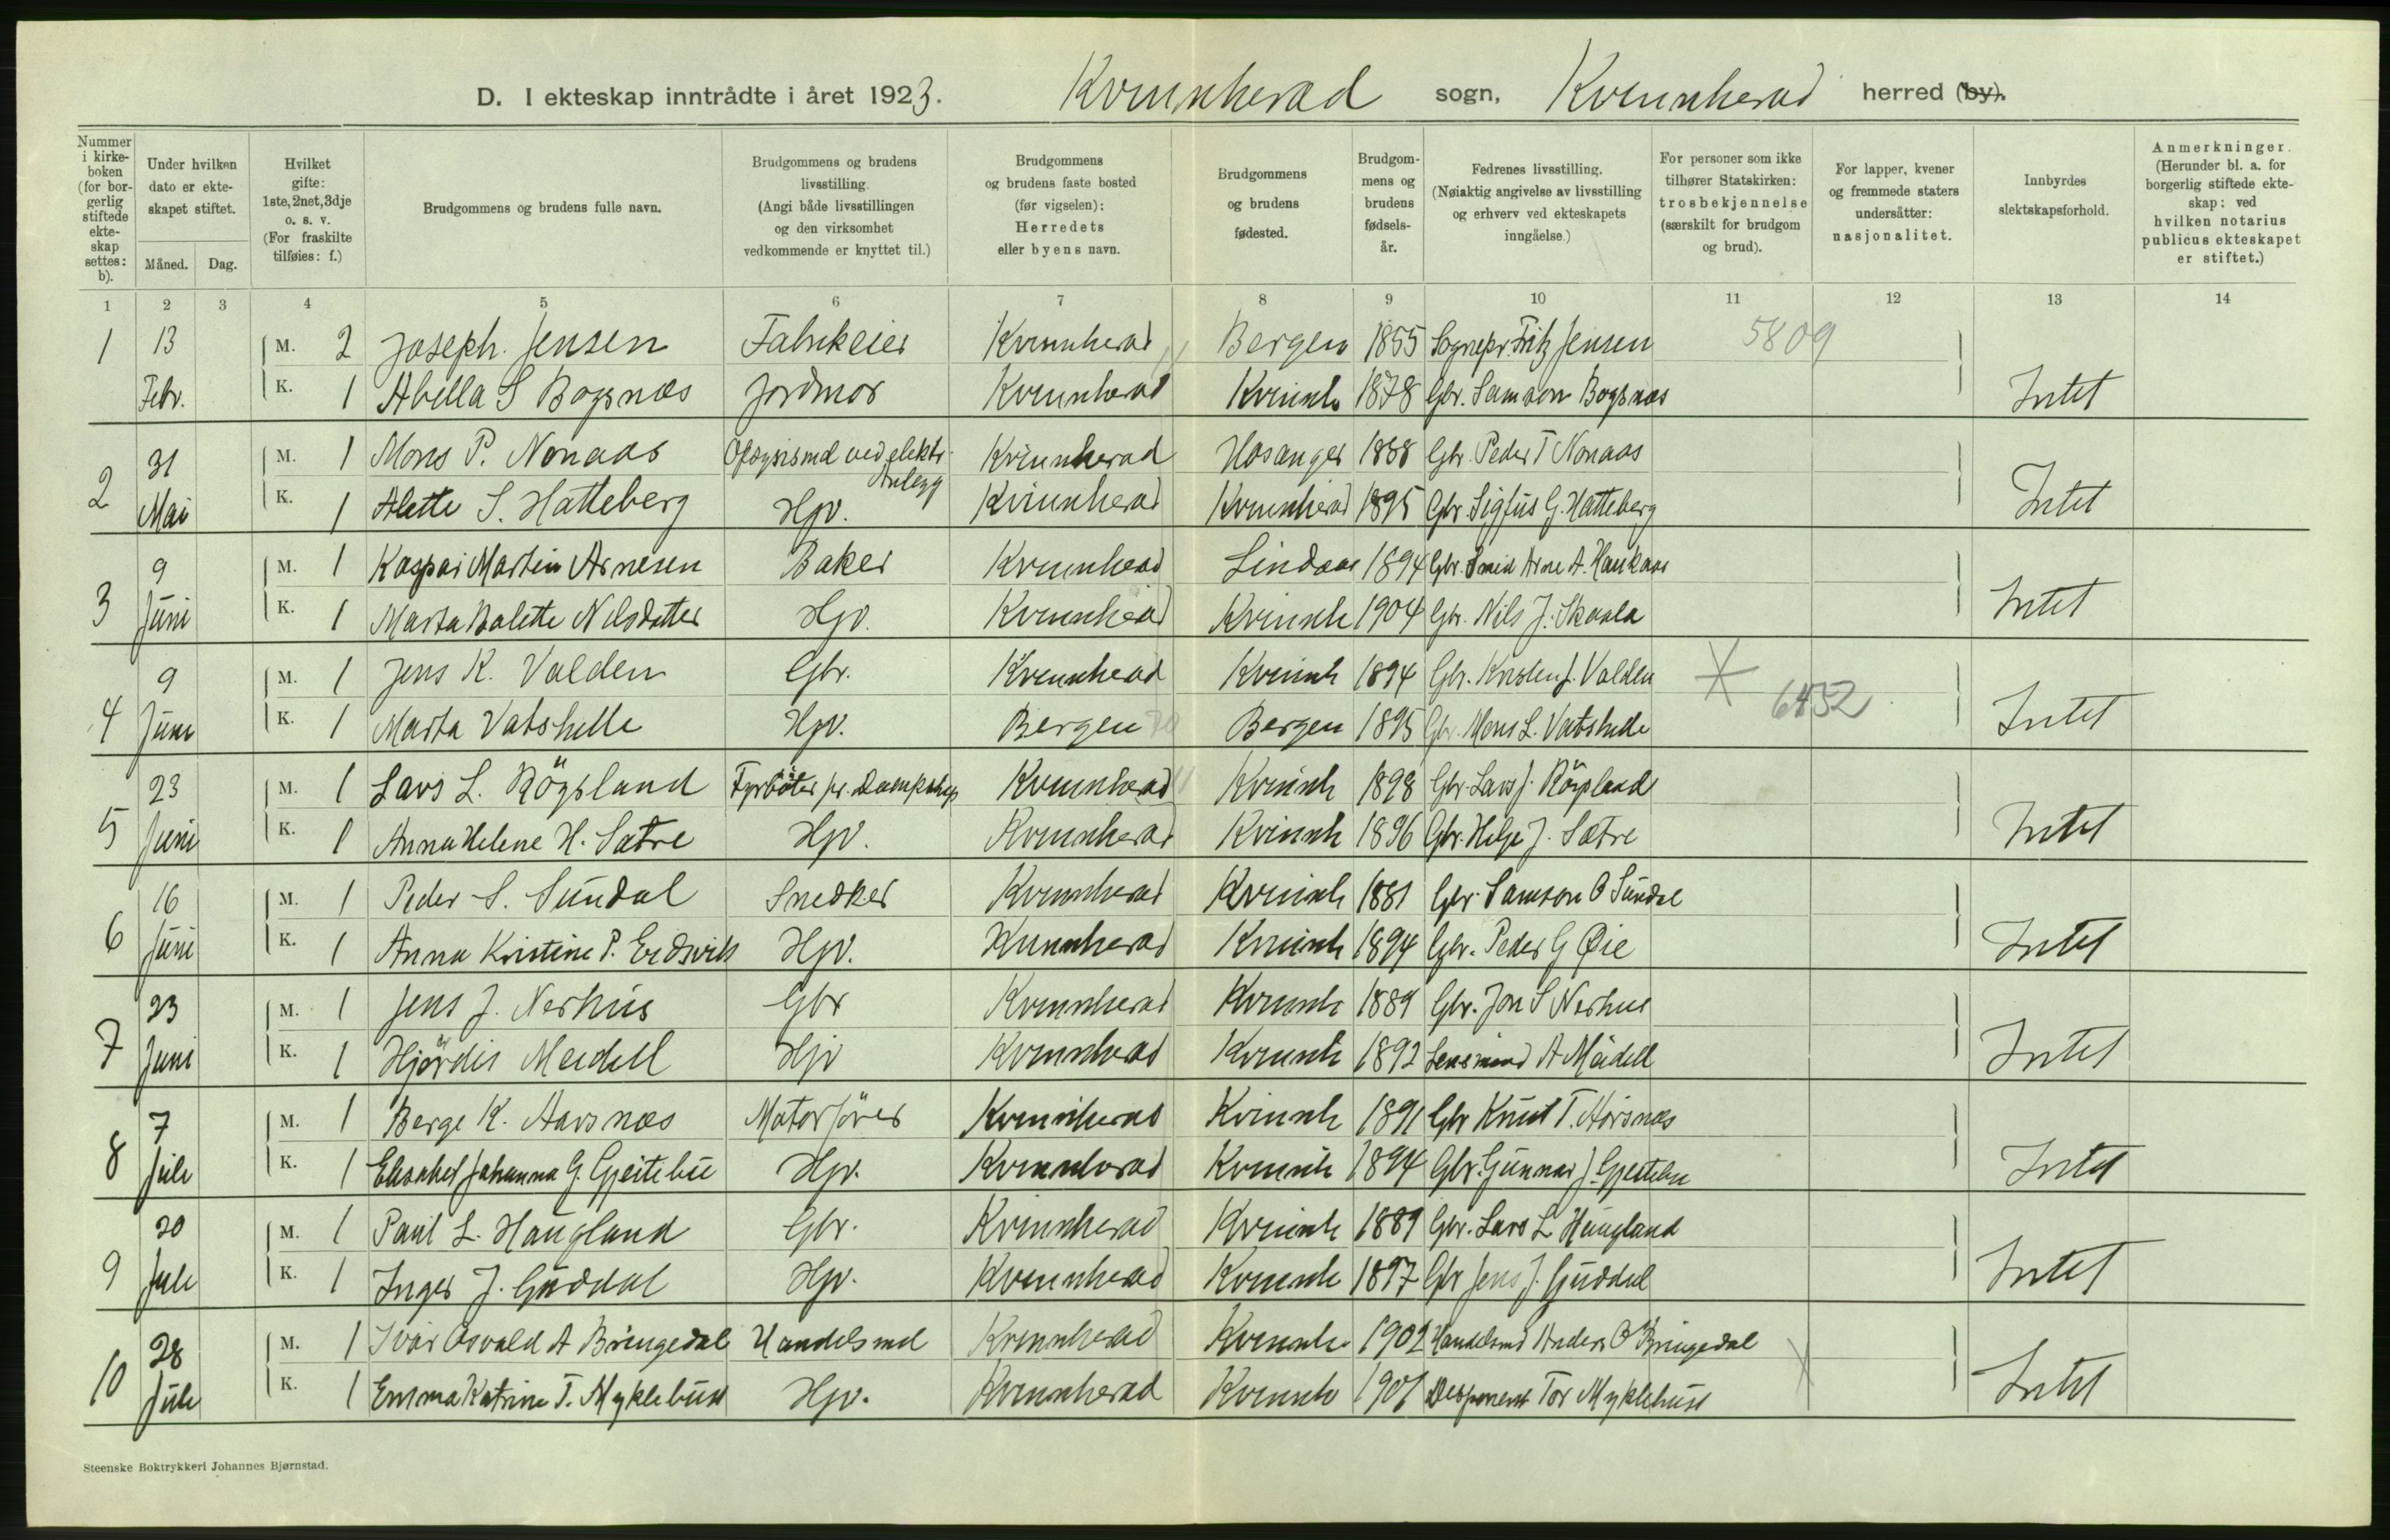 D. I ekteskap inntrådte i året 1923. Kvinnherad sogn, Kvinnherad herred (by).
Nummer i kirkeboken (for borgerlig stiftede ekteskap settes: b).
Under hvilken dato er ekteskapet stiftet.
Måned. Dag.
Hvilket gifte: 1ste, 2net, 3dje o. s. v. (For fraskilte tilføies: f.)
Brudgommens og brudens fulle navn.
Brudgommens og brudens livsstilling. (Angi både livsstillingen og den virksomhet vedkommende er knyttet til.)
Brudgommens og brudens faste bosted (før vigselen): Herredets eller byens navn.
Brudgommens og brudens fødested.
Brudgommens og brudens fødselsår.
Fedrenes livsstilling. (Nøiaktig angivelse av livsstilling og erhverv ved ekteskapets inngåelse.)
For personer som ikke tilhører Statskirken: trosbekjennelse (særskilt for brudgom og brud).
For lapper, kvener og fremmede staters undersåtter: nasjonalitet.
Innbyrdes slektskapsforhold.
Anmerkninger. (Herunder bl. a. for borgerlig stiftede ekteskap: ved hvilken notarius publicus ekteskapet er stiftet.)
1 2 3 4 5 6 7 8 9 10 11 12 13 14
1 13 M. 2 Joseph. Jensen Fabrikeier Kvinnherad Bergen 1855 Sognepr. Fritz Jensen 5809
Febr. K. 1 Abella S Bogsnes Jordmor Kvinnherad Kvinnh 1878 Gbr. Samson Bogsnes Intet
2 31 M. 1 Mons P. Nonaas Opsynsmd ved elektr. Anlegg Kvinnherad Hosanger 1888 Gbr. Peder T Nonaas
Mai K. 1 Alette S. Hatteberg Hjv. Kvinnherad Kvinnherad 1895 Gbr. Sigfus G. Hatteberg Intet
3 9 M. 1 Kaspar Martin Arnesen Baker Kvinnherad Lindaas 1894 Gbr. Smid Arne A. Haukaas
Juni K. 1 Marta Balette Nilsdatter Hjv. Kvinnherad Kvinnh 1904 Gbr. Nils J. Skaala Intet
4 9 M. 1 Jens K. Valden Gbr. Kvinnherad Kvinnh 1894 Gbr. Kristen J. Valden 6452
Juni K. 1 Marta Vatshelle Hjv. Bergen Bergen 1895 Gbr. Mons L. Vatshelle Intet
5 23 M. 1 Lars L. Røgsland Fyrbøter pr. Dampskip Kvinnherad Kvinnh 1898 Gbr. Lars J. Røgsland
Juni K. 1 Anna Helene H. Sætre Hjv. Kvinnherad Kvinnh 1896 Gbr. Helge J. Sætre Intet
6 16 M. 1 Peder S. Sundal Snedker Kvinnherad Kvinnh 1881 Gbr. Samson O Sundal
Juni K. 1 Anna Kristine P. Eidsvik Hjv. Kvinnherad Kvinnh 1894 Gbr. Peder G Øie Intet
7 23 M. 1 Jens J. Nerhus Gbr Kvinnherad Kvinnh 1889 Gbr. Jon S Nerhus
Juni K. 1 Hjørdis Meidell Hjv Kvinnherad Kvinnh 1892 Lensmand A Meidell Intet
8 7 M. 1 Berge K. Aarsnes Motorfører Kvinnherad Kvinnh 1891 Gbr Knut T. Aarsnes
Juli K. 1 Elisabet Johanna G. Gjeitebu Hjv. Kvinnherad Kvinnh 1894 Gbr. Gunnar J. Gjeitebu Intet
9 20 M. 1 Paul L. Haugland Gbr. Kvinnherad Kvinnh 1889 Gbr. Lars L Haugland
Juli K. 1 Inger J. Guddal Hjv. Kvinnherad Kvinnh 1897 Gbr Jens J. Guddal Intet
10 28 M. 1 Ivar Osvald A Bringedal Handelsmd Kvinnherad Kvinnh 1902 Handelsmd Anders O Bringedal
Juli K. 1 Emma Katrine T. Myklebust Hjv. Kvinnherad Kvinnh 1901 Disponent Tor Myklebust Intet
Steenske Boktrykkeri Johannes Bjørnstad.